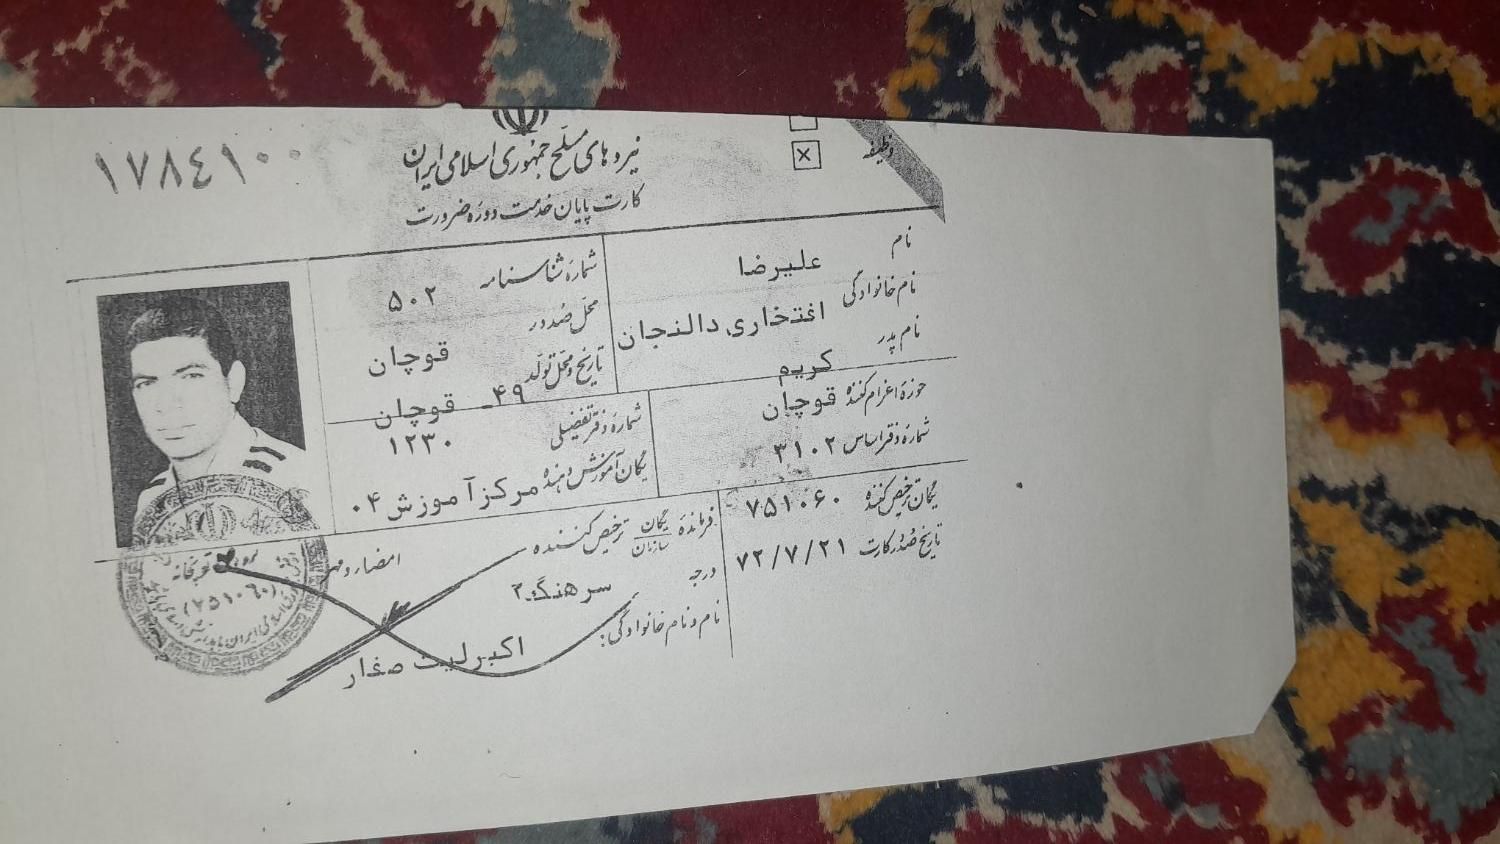 ۱۷۸۴۱۰۰
نیروهای مسلّح جمهوری اسلامی ایران
کارت پایان خدمت دوره ضرورت
وظیفه
نام
علیرضا
نام خانوادگی
افتخاری دالنجان
نام پدر
کریم
شماره شناسنامه
۵۰۲
محل صدور
قوچان
تاریخ و محل تولد
۴۹ـ قوچان
حوزه اعزام کننده قوچان
شماره دفتر اساس ۳۱۰۲
شماره دفتر تفضیلی
۱۲۳۰
یگان آموزش دهنده مرکز آموزش ۰۴
یگان ترخیص کننده ۷۵۱۰۶۰
تاریخ صدور کارت ۷۲/۷/۲۱
فرمانده یگان سازمان ترخیص کننده
امضاء و مهر
درجه سرهنگ۲
نام و نام خانوادگی:
اکبر لیث صفار
(۷۵۱۰۶۰)